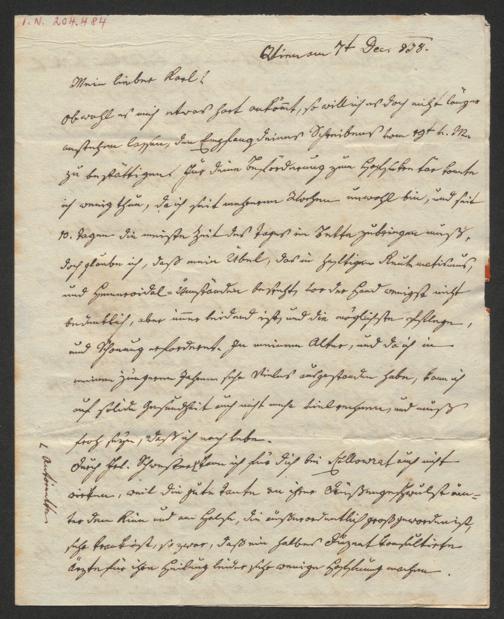 I.N. 204.484
Wien am 7t Dec. 838.
Mein lieber Karl!
Obwohl es mich etwas hart ankömt, so will ich es doch nicht länger
anstehen lassen, den Empfang deines Schreibens vom
zu bestättigen. Für deine Beförderung zum Hofsekretär konte
ich wenig thun, da ich seit mehreren Wochen unwohl bin, und seit
10. Tagen die meiste Zeit des Tages im Bette zubringen muß,
doch glaube ich, daß mein Übel, das in Reumatismus,
und Umständen besteht, vor der Hand wenigst nicht
bedenklich, aber immer leidend ist, und die möglichste Pflege,
und Schonung erfordert. In meinem Alter, und da ich in
meinen jüngeren Jahren sehr Vieles ausgestanden habe, kann ich
auf solide Gesundheit auch nicht mehr rechnen, und muß
froh seyn, daß ich noch lebe.
Durch kan ich für dich bei Kollowrat auch nicht
wirken, weil die gute Tante an ihrer un-
ter dem Kinn und am Halse, die außerordentlich groß geworden ist,
sehr krank ist, so zwar, daß ein halbes Duzent konsultirte
Ärzte für ihre Heilung leider sehr wenige Hoffnung machen.